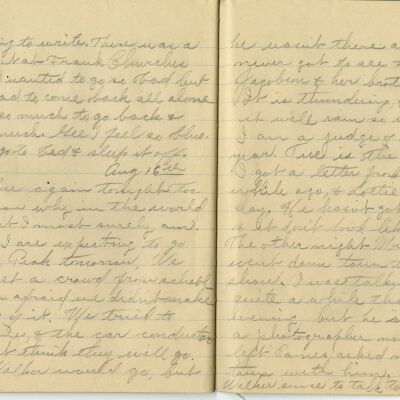 ng to write. There was a
at Frank Churches
I wanted to go so bad but
ad to come back all alone
so much to go back &
much. Gee I feel so blue.
go to bed & sleep it off.
Aug 16th
ue again tonight too.
ow why in the world
t I most surely am.
I are expecting to go
Peak tomorrow. We
et a crowd from school
afraid we didn't make
of it. We tried to
& the car conductor
t think they will go.
Walker would go, but
he wasn't there a
never got to see
Jacobson & her brot
It is thundering,
it will rain so w
I am a judge of
year. Two is the
I got a letter from
while ago, & Lottie
day. He hasn't got
& it don't look lik
The other night Mr
went down town t
show. I was talki
quite a while tha
evening but he is
a photographer no
left asked m
town with him.
Walker since to talk to